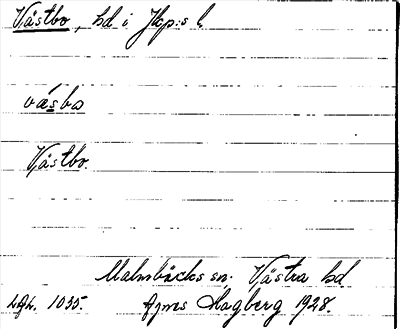 Västbo, hd i Jkp:s l
vǽsbo
Västbo.
Malmbäcks sn. Västra hd
LAL. 1035. Agnes Hagberg 1928.